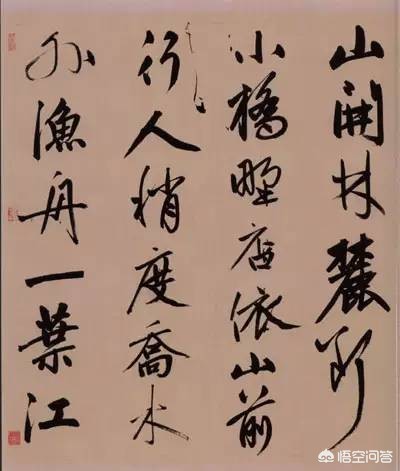 山開林麓斷
小橋野店依山前
行人稍度喬木
外漁舟一葉江
悟空问答